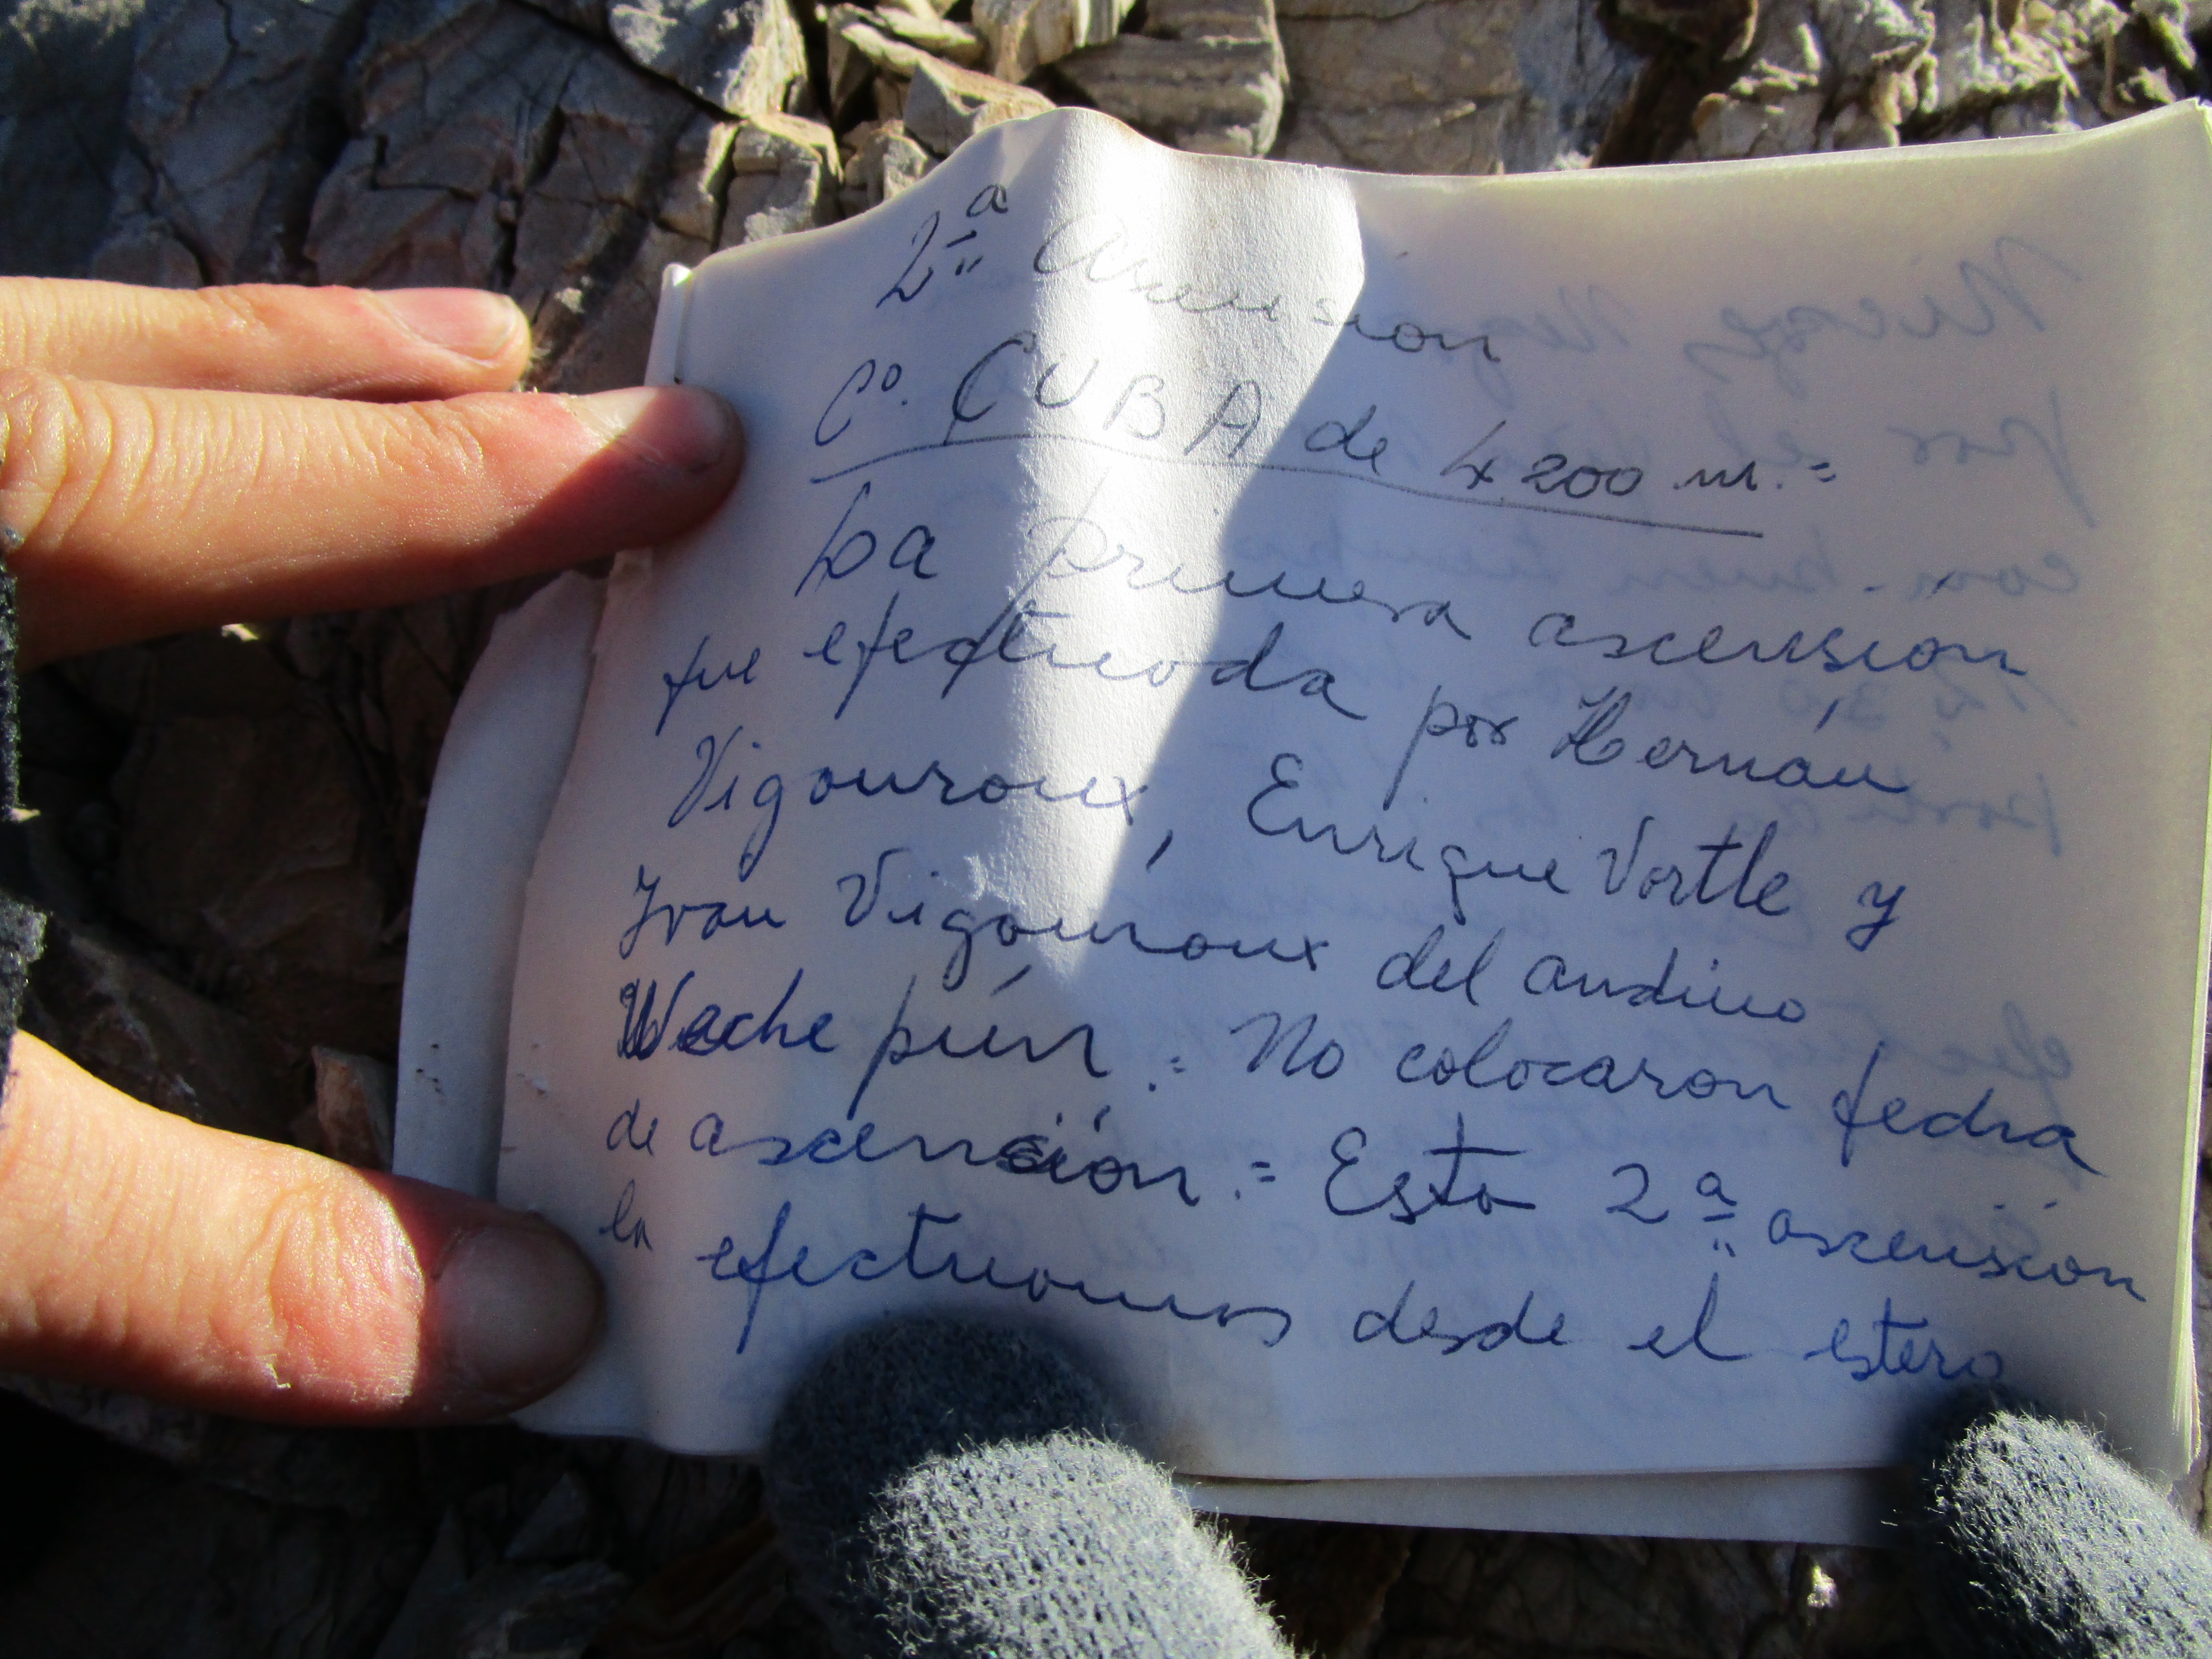 2ª Ascension
Cº. CUBA de 4.200 m.=
La primera ascensión
fue efectuada por Hernán
Vigouroux, Enrique Vortle y
Ivan Vigouroux del andino
Wechepún.= No colocaron fecha
de ascensión.= Esta 2ª ascensión
la efectuamos desde el estero